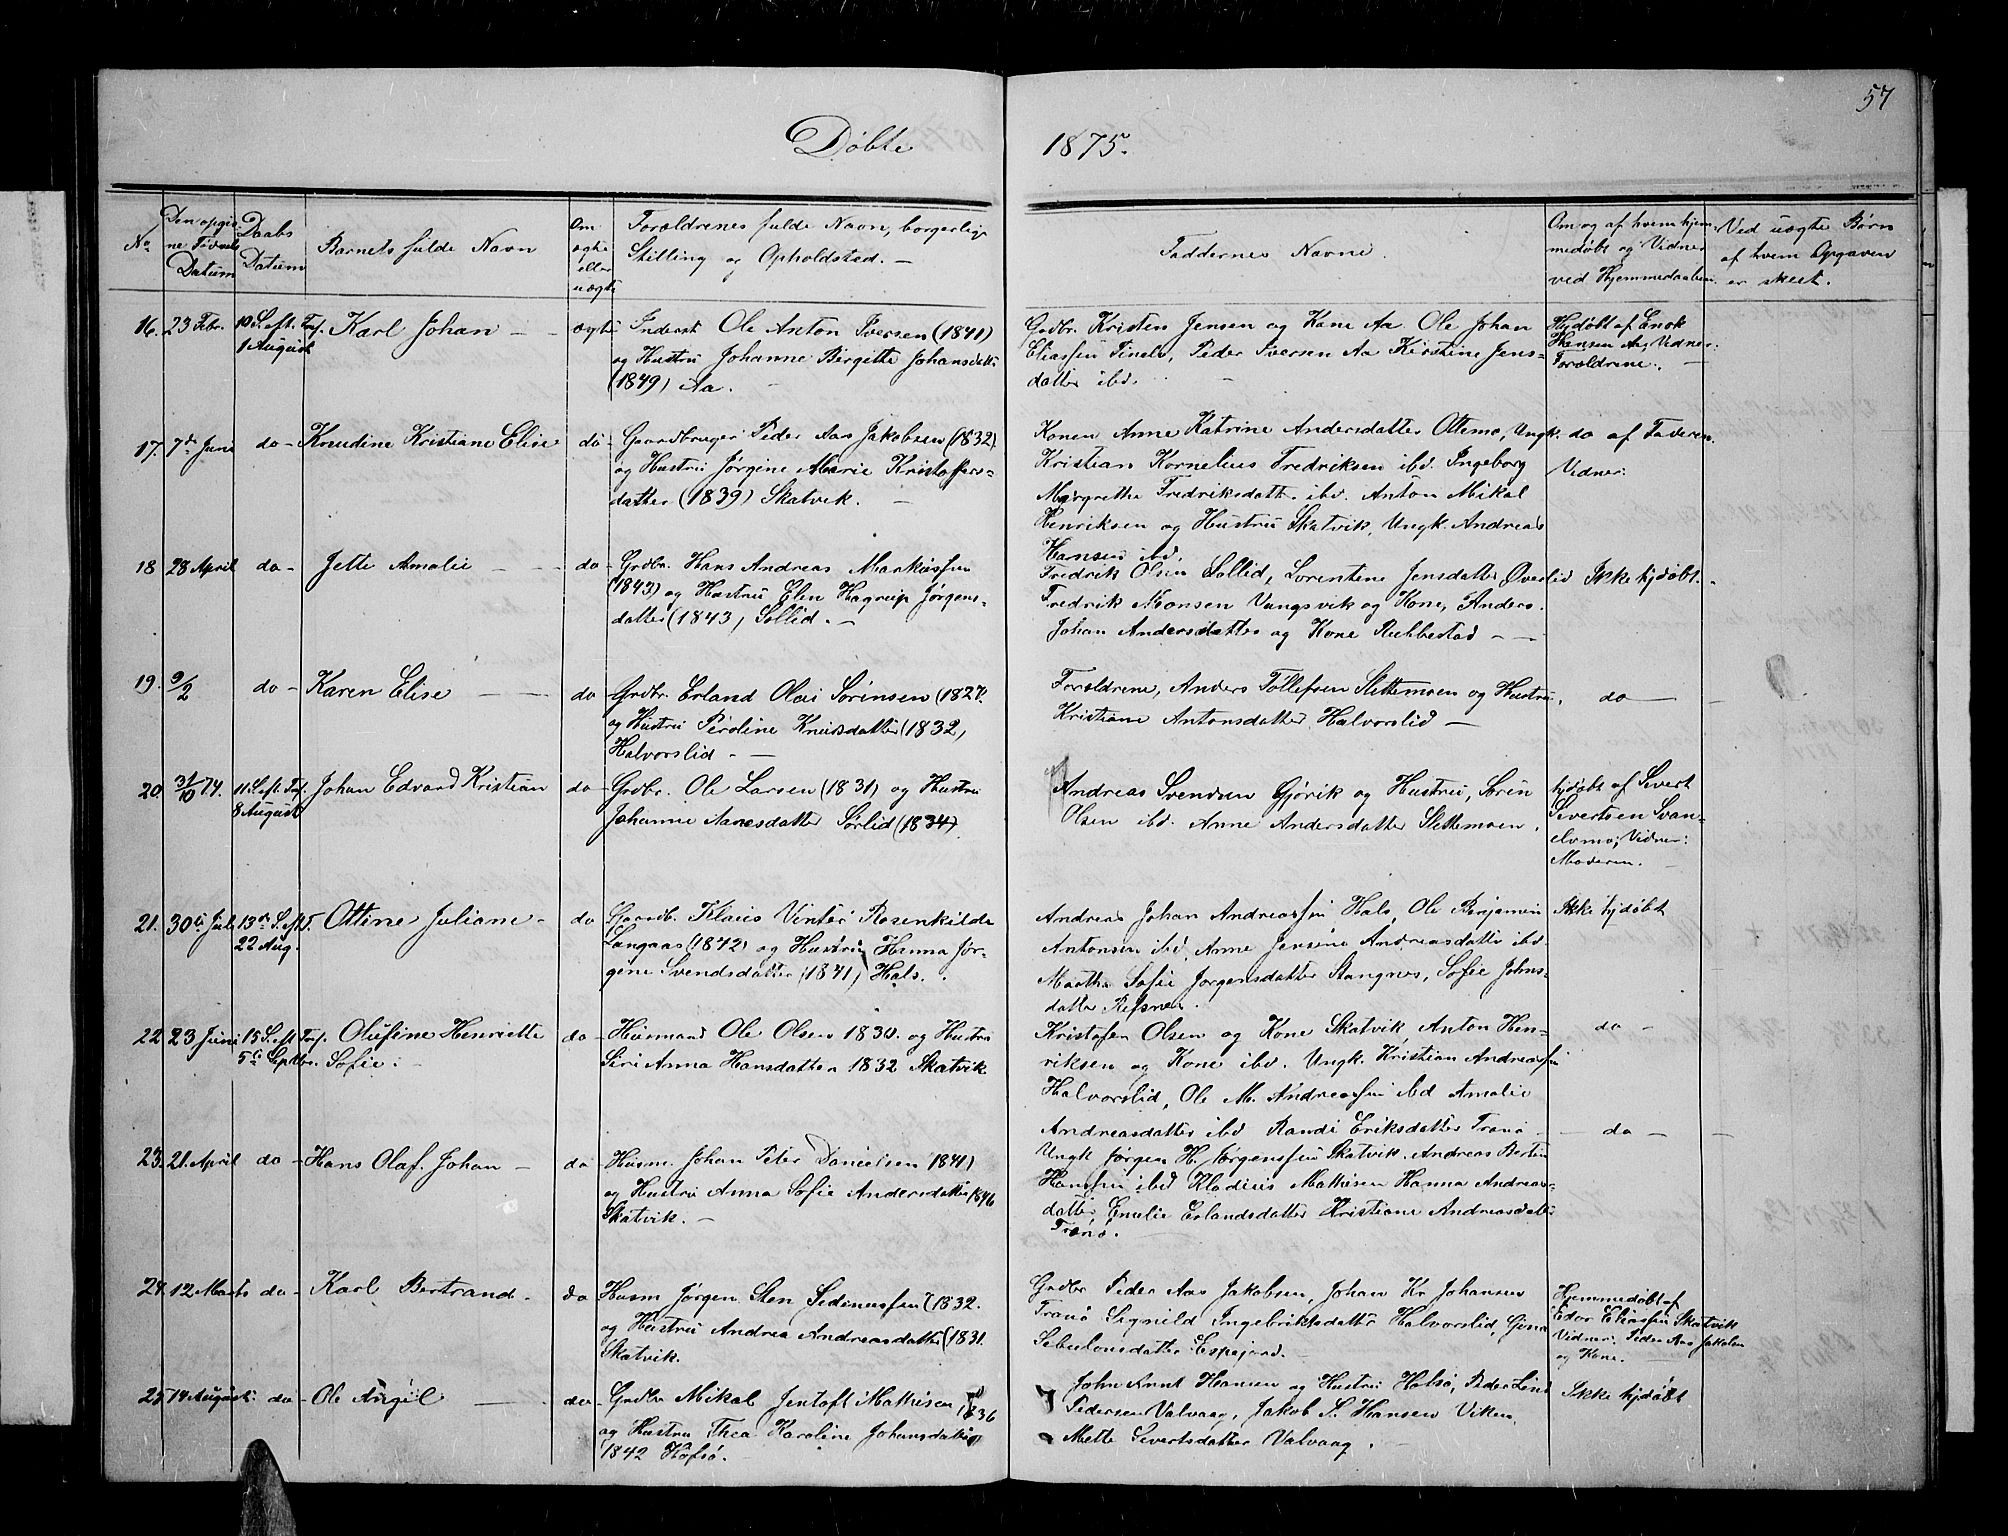 57
Døbte
1875.
No
Den opgiv-
ne Fødsels
Datum
Daabs
Datum
Barnets fulde Navn
Om
ægte
eller
uægte
Forældrenes fulde Navn, borgerlige
Stilling og Opholdsted. –
Faddernes Navne.
Om og af hvem hjem-
medøbt og Vidner
ved Hjemmedaaben
Ved uægte Børn
af hvem Opgaven
er skeet.
16. 23 Febr. 10 S. eft. Tref. Karl Johan – – ægte Inderst Ole Anton Iversen (1841)
1 August og Hustru Johanne Birgitte Johansdatter
(1849) Aa. –
Grdbr. Kristen Jensen og Kone Aa. Ole Johan
Eliassen Tinels, Peder Iversen Aa Kirstine Jens-
datter ibd. –
Hjdøbt af Enok
Hansen Aa, Vidner:
Forældrene.
17. 7de Juni do – Knudine Kristiane Elise do – Gaardbruger Peder Aas Jakobsen (1832)
og Hustru Jørgine Marie Kristoffers-
datter (1839) Skatvik. –
Konen Anne Katrine Andersdatter Ottemo, Ungk.
Kristian Kornelius Fredriksen ibd. Ingeborg
Margrethe Fredriksdatt. ibd. Anton Mikal
Henriksen og Hustru Skatvik, Ungk. Andreas
Hansen ibd.
do af Faderen
Vidner:
18 28 April do – Jette Amalie – – do – Grdbr. Hans Andreas Markussen
(1843) og Hustru Elen Hagrup Jørgens-
datter (1843) Sollid. –
Fredrik Olsen Sollid, Lorentine Jensdatter Øverlid
Fredrik Monsen Vangsvik og Kone, Anders
Johan Andersdatter og Kone Rubbestad – –
Ikke hjdøbt. –
19. 9/2 do – Karen Elise – – do Grdbr. Erland Olai Sørinsen (1827.
og Hustru Peroline Knudsdatter (1832,
Halvorslid. –
Forældrene, Anders Tollefsen Slettemoen og Hustru,
Kristiane Antonsdatter Halvorslid –
do –
20. 31/10 74. 11. S. eft. Tref. Johan Edvard Kristian do – Grdbr. Ole Larsen (1831) og Hustru
8 August Johanne Aanesdatter Sørlid (1834).
Andreas Svendsen Gjøvik og Hustru, Søren
Olsen ibd. Anne Andersdatter Slettemoen.
hjdøbt af Sivert
Sivertsen Svan-
elvmo, Vidner:
Moderen. –
21. 30te Juli 13de S. eft. T. Ottine Juliane – do Gaardb. Klaus Vinter Rosenkilde
22 Aug. Langaas (1842) og Hustru Hanna Jør-
gine Svendsdatter (1841) Hals.
Andreas Johan Andreassen Hals, Ole Benjamin
Antonsen ibd, Anne Jensine Andreasdatter ibd.
Martha Sofie Jørgensdatter Stangnes, Sofie Johns-
datter Refsnes.
Ikke hjdøbt
22 23 Juni 15 S. eft Tref. Olufine Henriette do – Husmand Ole Olsen 1830. og Hustru
5te Septbr. Sofie. – Siri Anna Hansdatter 1832 Skatvik
Kristofen Olsen og Kone Skatvik Anton Hen-
riksen og Kone ibd. Ungk. Kristian Andreassen
Halvorslid, Ole M. Andreassen ibd Amalie
Andreasdatter ibd Randi Eriksdatter Tranø –
do –
23. 21. April do – Hans Olaf Johan – do – Husm. Johan Peter Danielsen 1841)
og Hustru Anna Sofie Andersdatter 1846
Skatvik. –
Ungk Jørgen H. Jørgensen Skatvik. Andreas Bertin
Hansen ibd Kladius Mathisen Hanna Andreas-
datter, Emelie Erlandsdatter Kristiane Andreasdatter
Tranø.
– do – –
24. 12 Marts do – Karl Bertrand. do Husm Jørgen Sten Sedeniussen (1832.
og Hustru Andrea Andreasdatter (1831.
Skatvik.
Grdbr Peder Aas Jakobsen, Johan Kr Johansen
Tranø Signild Ingebriktsdatter Halvorslid, Gjina
Sebulonsdatter Espejord. –
Hjemmedøbt af
Edor Eliassen Skatvik
Vidner: Peder Aas Jakobsen
og Kone.
25 14 August do – Ole Angel – do – Grdbr Mikal Jentoft Mathisen 1836
og Hustru Thea Karoline Johansdatter
1842 Kofsø.
John Arnt Hansen og Hustru Hofsø, Peder Lind
Pedersen Valvaag, Jakob S. Hansen Viken.
Mette Sivertsdatter Valvaag. –
Ikke hjdøbt